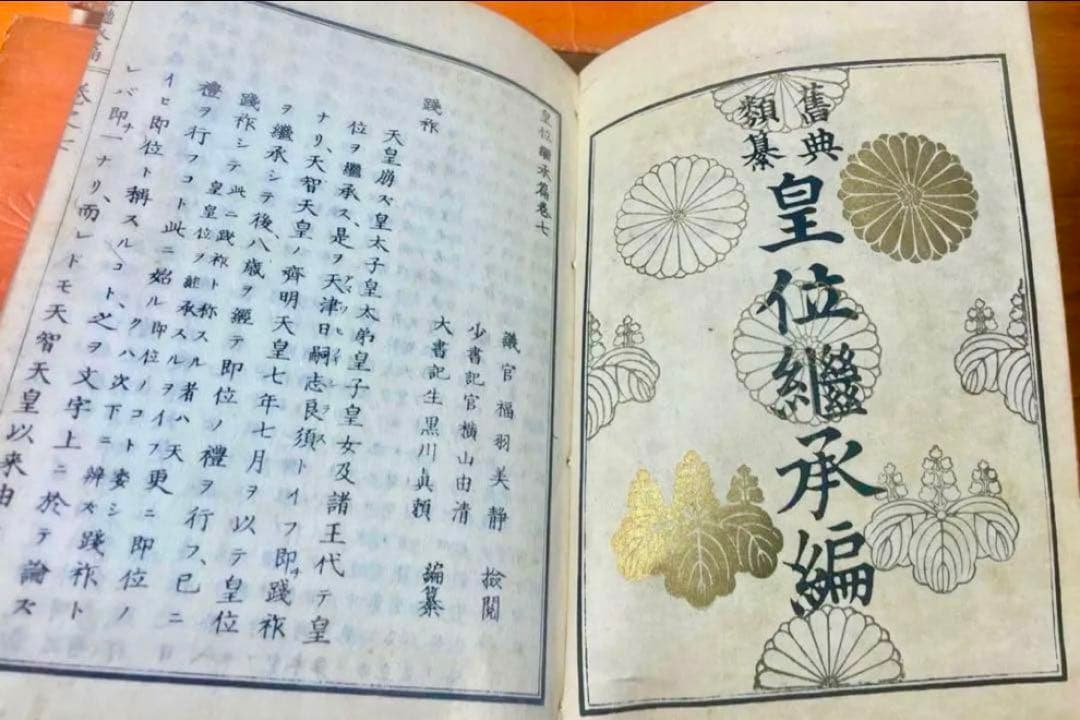 舊典
類纂
皇位繼承編
皇位繼承篇卷七
議官福羽美靜 撿閲
少書記官横山由清
大書記生黒川眞頼 編纂
踐祚
天皇崩ズ皇太子皇太弟皇子皇女及諸王代テ皇
位ヲ繼承ス、是ヲ天津日嗣志良須トイフ即チ踐祚
ナリ、天智天皇ノ齊明天皇七年七月ヲ以テ皇位
ヲ繼承シテ後八歳ヲ經テ即位ノ禮ヲ行フ、已ニ
踐祚シテ此ニ踐祚ト称スル者ハ天皇皇位ヲ継承スルヲイフ更ニ即位ノ
禮ヲ行フコト此ニ始ル即位ノコト委シクハ次下ニ辨ズ踐祚ト
イヒ即位ト稱スルコト、之ヲ文字上ニ於テ論ズ
レバ即チ一ナリ、而レドモ天智天皇以来由